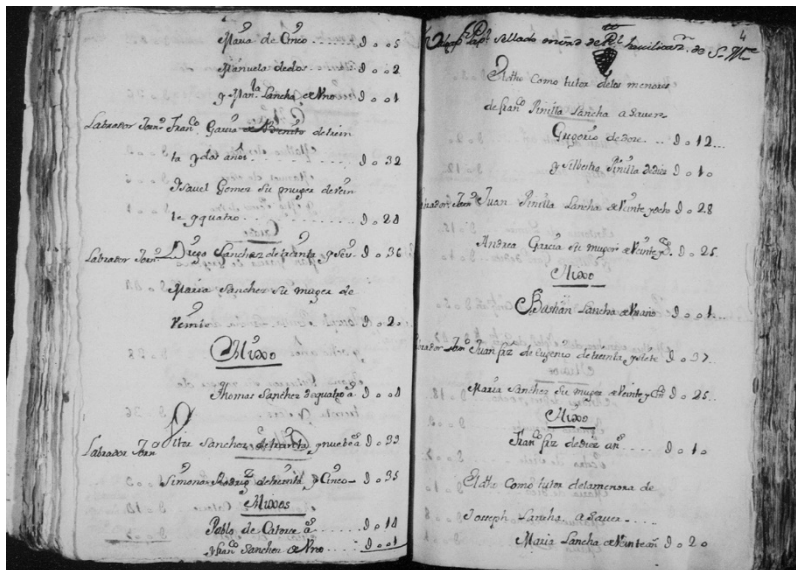 Maria de Cinco ........ D o o 5
Manuela de dos .... D o o 2
y Man.la Sancha de Vno D o o 1
Labrador Jorn.o Fran.co Garcia de trein
ta y dos años ........ D o 32
Ysavel Gomez su muger de vein
te y quatro ........ D o 24
Labrador Jorn.o Diego Sanchez de treinta y seis D o 36
Maria Sanchez su muger de
Veinte D o 2o
Hixo
Thomas Sanchez de quatro a.s D o o 4
Labrador Jorn.o Sanchez de treinta y nueve a.s D o 39
Simona Rodrig.z de treinta y Cinco D o 35
Hixos
Pablo de Catorce a.s D o 14
y Fran.co Sanchez de Vno D o o 1
4
Sellado
El dho Como tutor de los menores
de Fran.co Pinilla Sancha a Saver
Gregorio de doze .. D o 12
y Silbestra Pinilla de diez D o 1o
Jorn.o Juan Pinilla Sancha de Veinte y ocho D o 28
Andrea Garcia su muger de Veinte y D o 25
Hixo
Bastian Sancha de Vn año D o o 1
Jorn.o Juan frz de Eugenio de treinta y siete D o 37
Maria Sanchez Su muger de Veinte y D o 25
Hixo
Fran.co frz de diez añ.s D o 1o
El dho Como tutor de la menora de
Joseph Sancha, a Saver ....
Maria Sancha de Veinte añ.s D o 2o